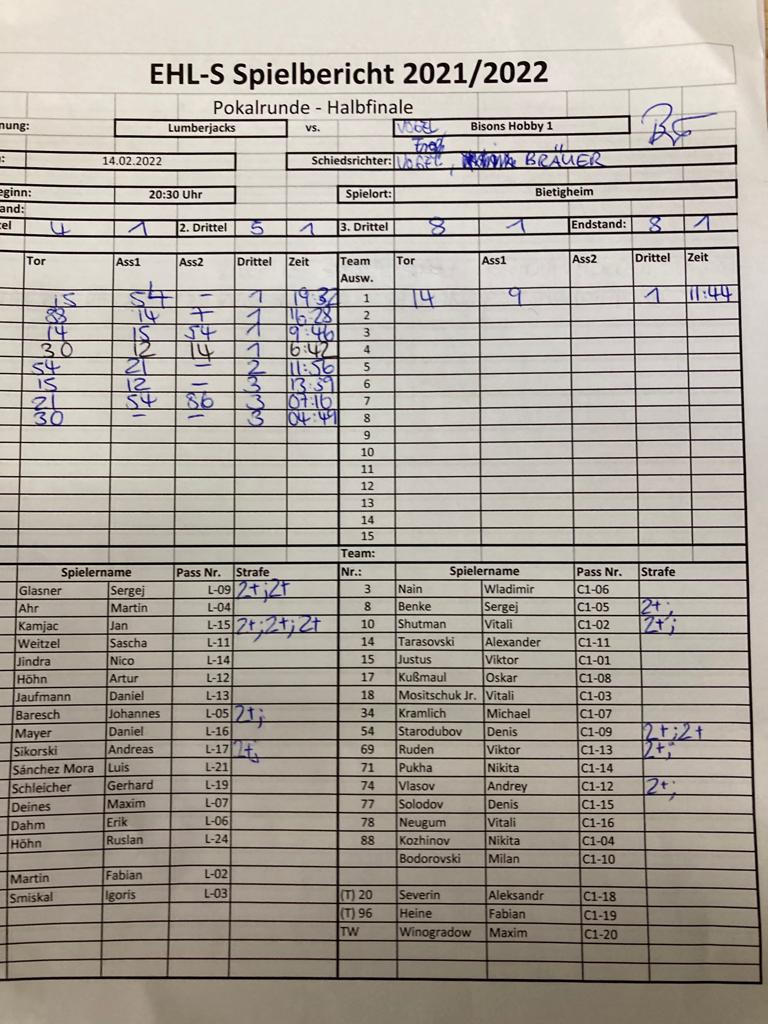 EHL-S Spielbericht 2021/2022
Pokalrunde - Halbfinale
nung: Lumberjacks vs. VOGEL Bisons Hobby 1
: 14.02.2022 Schiedsrichter: VOGEL, BRÄUER
eginn: 20:30 Uhr Spielort: Bietigheim
and:
el 4 1 2. Drittel 5 1 3. Drittel 8 1 Endstand: 8 1
Tor Ass1 Ass2 Drittel Zeit Team Tor Ass1 Ass2 Drittel Zeit
Ausw.
15 54 – 1 19:32 1 14 9 1 11:44
88 14 7 1 16:28 2
14 15 54 1 9:46 3
30 12 14 1 6:42 4
54 21 – 2 11:56 5
15 12 – 3 13:59 6
21 54 86 3 07:16 7
30 – – 3 04:49 8
9
10
11
12
13
14
15
Team:
Spielername Pass Nr. Strafe Nr.: Spielername Pass Nr. Strafe
Glasner Sergej L-09 2+;2+ 3 Nain Wladimir C1-06
Ahr Martin L-04 8 Benke Sergej C1-05 2+;
Kamjac Jan L-15 2+;2+;2+ 10 Shutman Vitali C1-02 2+;
Weitzel Sascha L-11 14 Tarasovski Alexander C1-11
Jindra Nico L-14 15 Justus Viktor C1-01
Höhn Artur L-12 17 Kußmaul Oskar C1-08
Jaufmann Daniel L-13 18 Mositschuk Jr. Vitali C1-03
Baresch Johannes L-05 2+; 34 Kramlich Michael C1-07
Mayer Daniel L-16 54 Starodubov Denis C1-09 2+;2+
Sikorski Andreas L-17 2+; 69 Ruden Viktor C1-13 2+;
Sánchez Mora Luis L-21 71 Pukha Nikita C1-14
Schleicher Gerhard L-19 74 Vlasov Andrey C1-12 2+;
Deines Maxim L-07 77 Solodov Denis C1-15
Dahm Erik L-06 78 Neugum Vitali C1-16
Höhn Ruslan L-24 88 Kozhinov Nikita C1-04
Bodorovski Milan C1-10
Martin Fabian L-02
Smiskal Igoris L-03 (T) 20 Severin Aleksandr C1-18
(T) 96 Heine Fabian C1-19
TW Winogradow Maxim C1-20